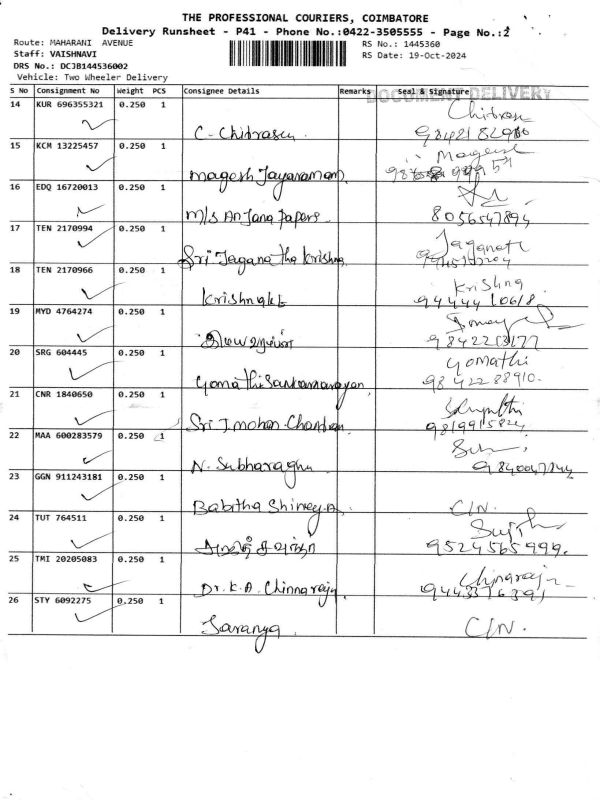 THE PROFESSIONAL COURIERS, COIMBATORE
Delivery Runsheet - P41 - Phone No.:0422-3505555 - Page No.:2
Route: MAHARANI AVENUE
RS No.: 1445360
Staff: VAISHNAVI
RS Date: 19-Oct-2024
DRS No.: DCJB144536002
Vehicle: Two Wheeler Delivery
S No Consignment No Weight PCS Consignee Details Remarks Seal & Signature
DOCUMENT DELIVERY
14 KUR 696355321 0.250 1
C. Chitrasu
15 KCM 13225457 0.250 1
Magesh Jayaraman
16 EDQ 16720013 0.250 1
M/s Anjana Papers 8056547894
17 TEN 2170994 0.250 1 Jaganath
Sri Jaganatha Krishna
18 TEN 2170966 0.250 1 Krishna
94444 10618
19 MYD 4764274 0.250 1
9842213177
20 SRG 604445 0.250 1 Gomathi
Gomathi Sankaranarayan 98422 88910.
21 CNR 1840650 0.250 1
Sri J. Mohan Chandran 9819915824
22 MAA 600283579 0.250 1
N. Subharaghu
23 GGN 911243181 0.250 1
Babitha Shirley.A. C/N.
24 TUT 764511 0.250 1
9524565999.
25 TMI 20205083 0.250 1 Chinaraju
Dr. K.A. Chinnaraju 9443376391
26 STY 6092275 0.250 1
Saranya C/N.